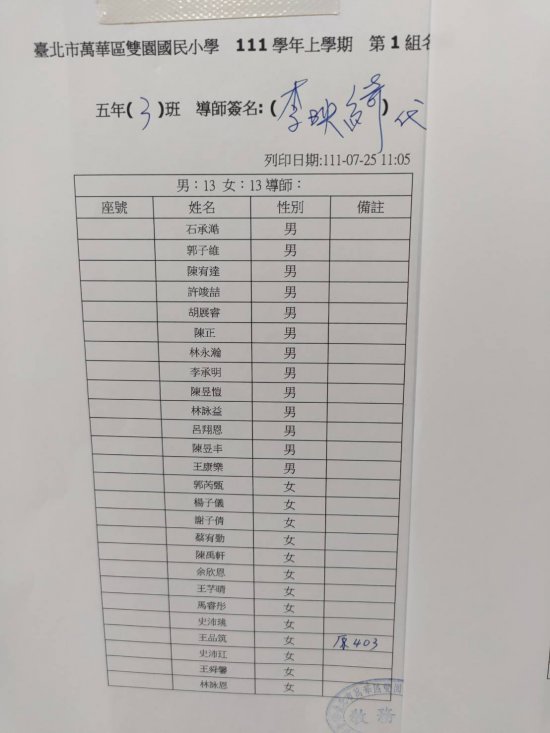 臺北市萬華區雙園國民小學 111 學年上學期 第 1 組名
五年(3)班 導師簽名:(李映 代)
列印日期:111-07-25 11:05
男：13 女：13 導師：
座號 姓名 性別 備註
石承澔 男
郭子維 男
陳宥達 男
許竣喆 男
胡展睿 男
陳正 男
林永瀚 男
李承明 男
陳昱愷 男
林詠益 男
呂翔恩 男
陳昱丰 男
王康樂 男
郭芮甄 女
楊子儀 女
謝子倩 女
蔡宥勤 女
陳禹軒 女
余欣恩 女
王芓晴 女
馬睿彤 女
史沛璣 女
王品筑 女 原403
史沛玒 女
王舜馨 女
林詠恩 女
萬華區雙園
教務